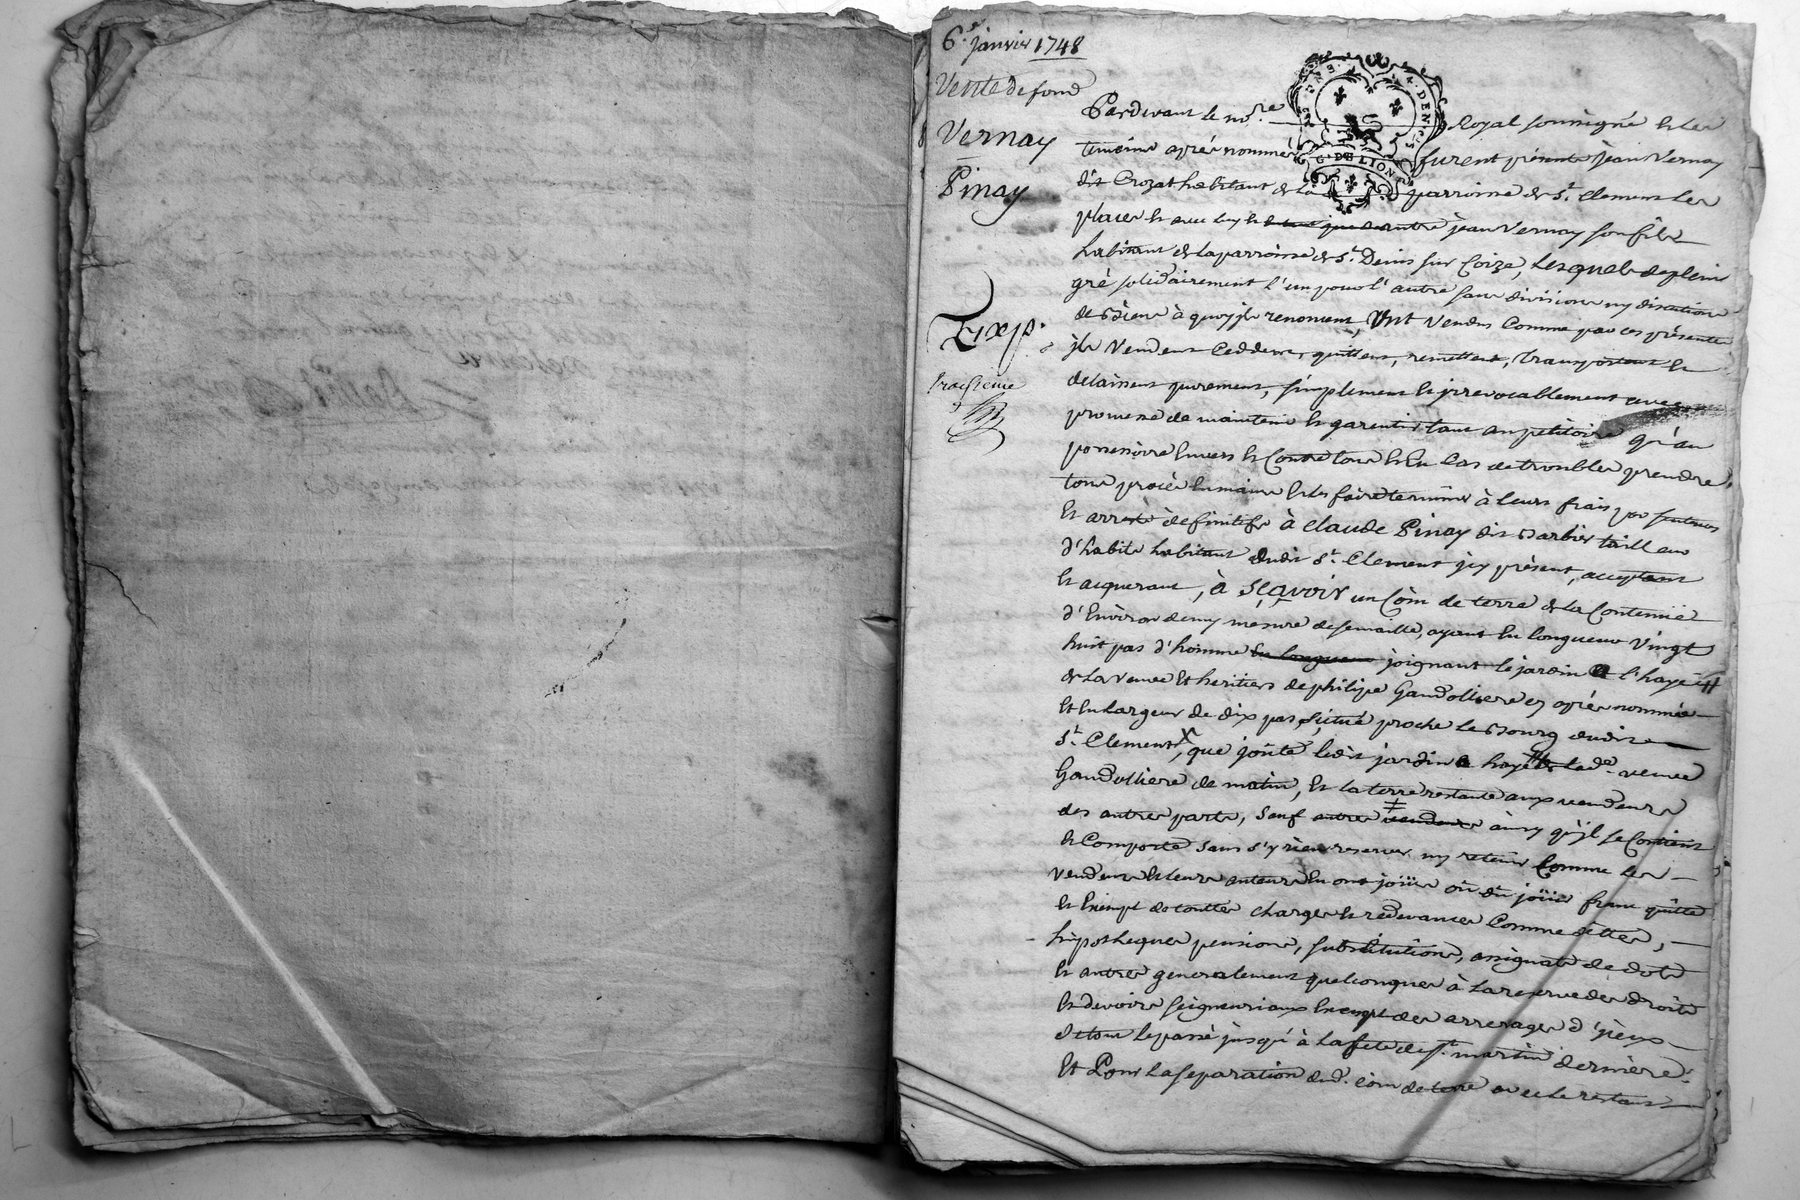 6.e janvier 1748
Vente de fond
Vernay
Pinay
Exp.
troisieme
Pardevant le no.re Royal soussigné et les
temoins après nommés furent présents jean Vernay
dit Crozat habitant de la parroisse de St. Clement les
places et avec luy jean Vernay son fils
habitant de la parroisse de St. Denis sur Coize, lesquels de plein
gré solidairement l'un pour l'autre sans division ny discution
de biens à quoy jls renoncent, ont vendus comme par ces présentes
jls vendent ceddent, quittent, remettent, transportent et
delaissent purement, simplement et jrrevocablement avec
promesse de maintenir et garentir tant au petitoire qu'au
possessoire envers et contre tous et en cas de troubles prendre
tous procès en main et les faire terminer à leurs frais par sentences
et arrests définitifs à Claude Pinay dit Barbier tailleur
d'habits habitant dudit St. Clement jcy présent, acceptant
et acquerant, à sçavoir un coin de terre de la contenüe
d'environ demy mesure de semaille, ayant en longueur vingt
huit pas d'homme en longueur joignant le jardin l'haye
de la veuve et heritiers de philipe Gandolliere cy après nommés
et en largeur de dix pas, situé proche le Bourg dudit
St. Clement, que joûte ledit jardin haye lade. veuve
Gandolliere de matin, et la terre restante aux vendeurs
des autres parts, sauf autres ainsy qu'jl se contient
et comporte sans s'y rien reserver ny retenir comme les
vendeurs et leurs auteurs en ont joüis ou dû joüir franc quitte
et exempt de toutes charges et redevances comme dettes,
hipotheques pensions, substitutions, assignats de dots
et autres generalement quelconques à la reserve des droits
et devoirs seigneuriaux exempt des arrerages d'jceux
de tout le passé jusqu'à la fete de St. martin dernière.
Et Pour la separation dud. coin de terre avec le restant